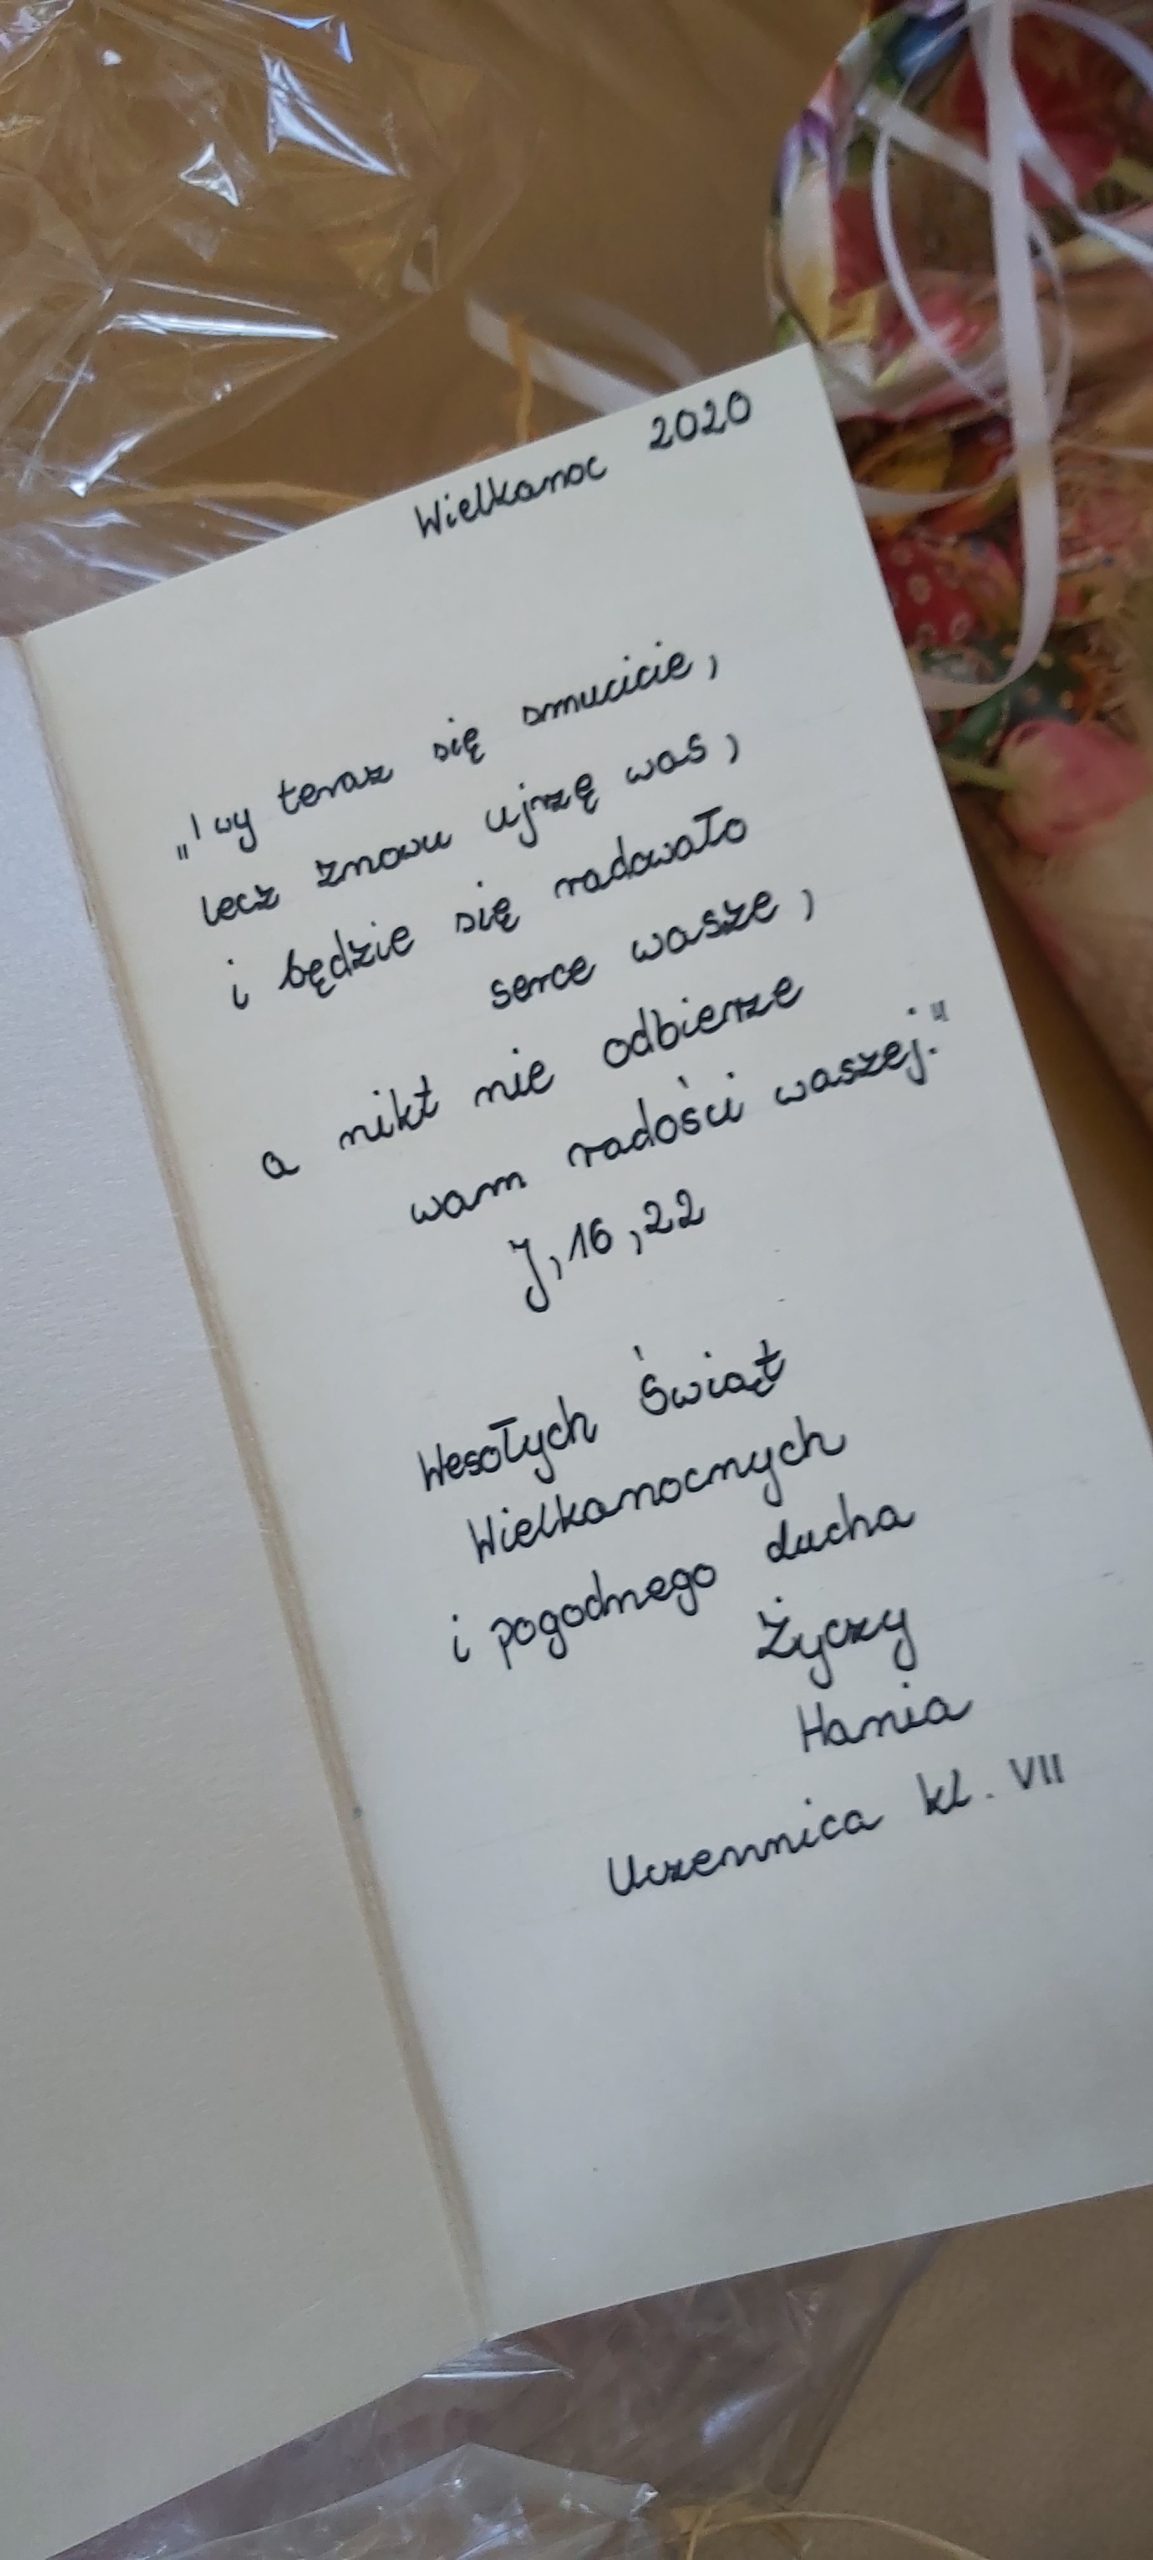 Wielkanoc 2020
„I wy teraz się smucicie,
lecz znowu ujrzę was,
i będzie się radowało
serce wasze,
a nikt nie odbierze
wam radości waszej."
J, 16, 22
Wesołych Świąt
Wielkanocnych
i pogodnego ducha
Życzy
Hania
Uczennica kl. VII